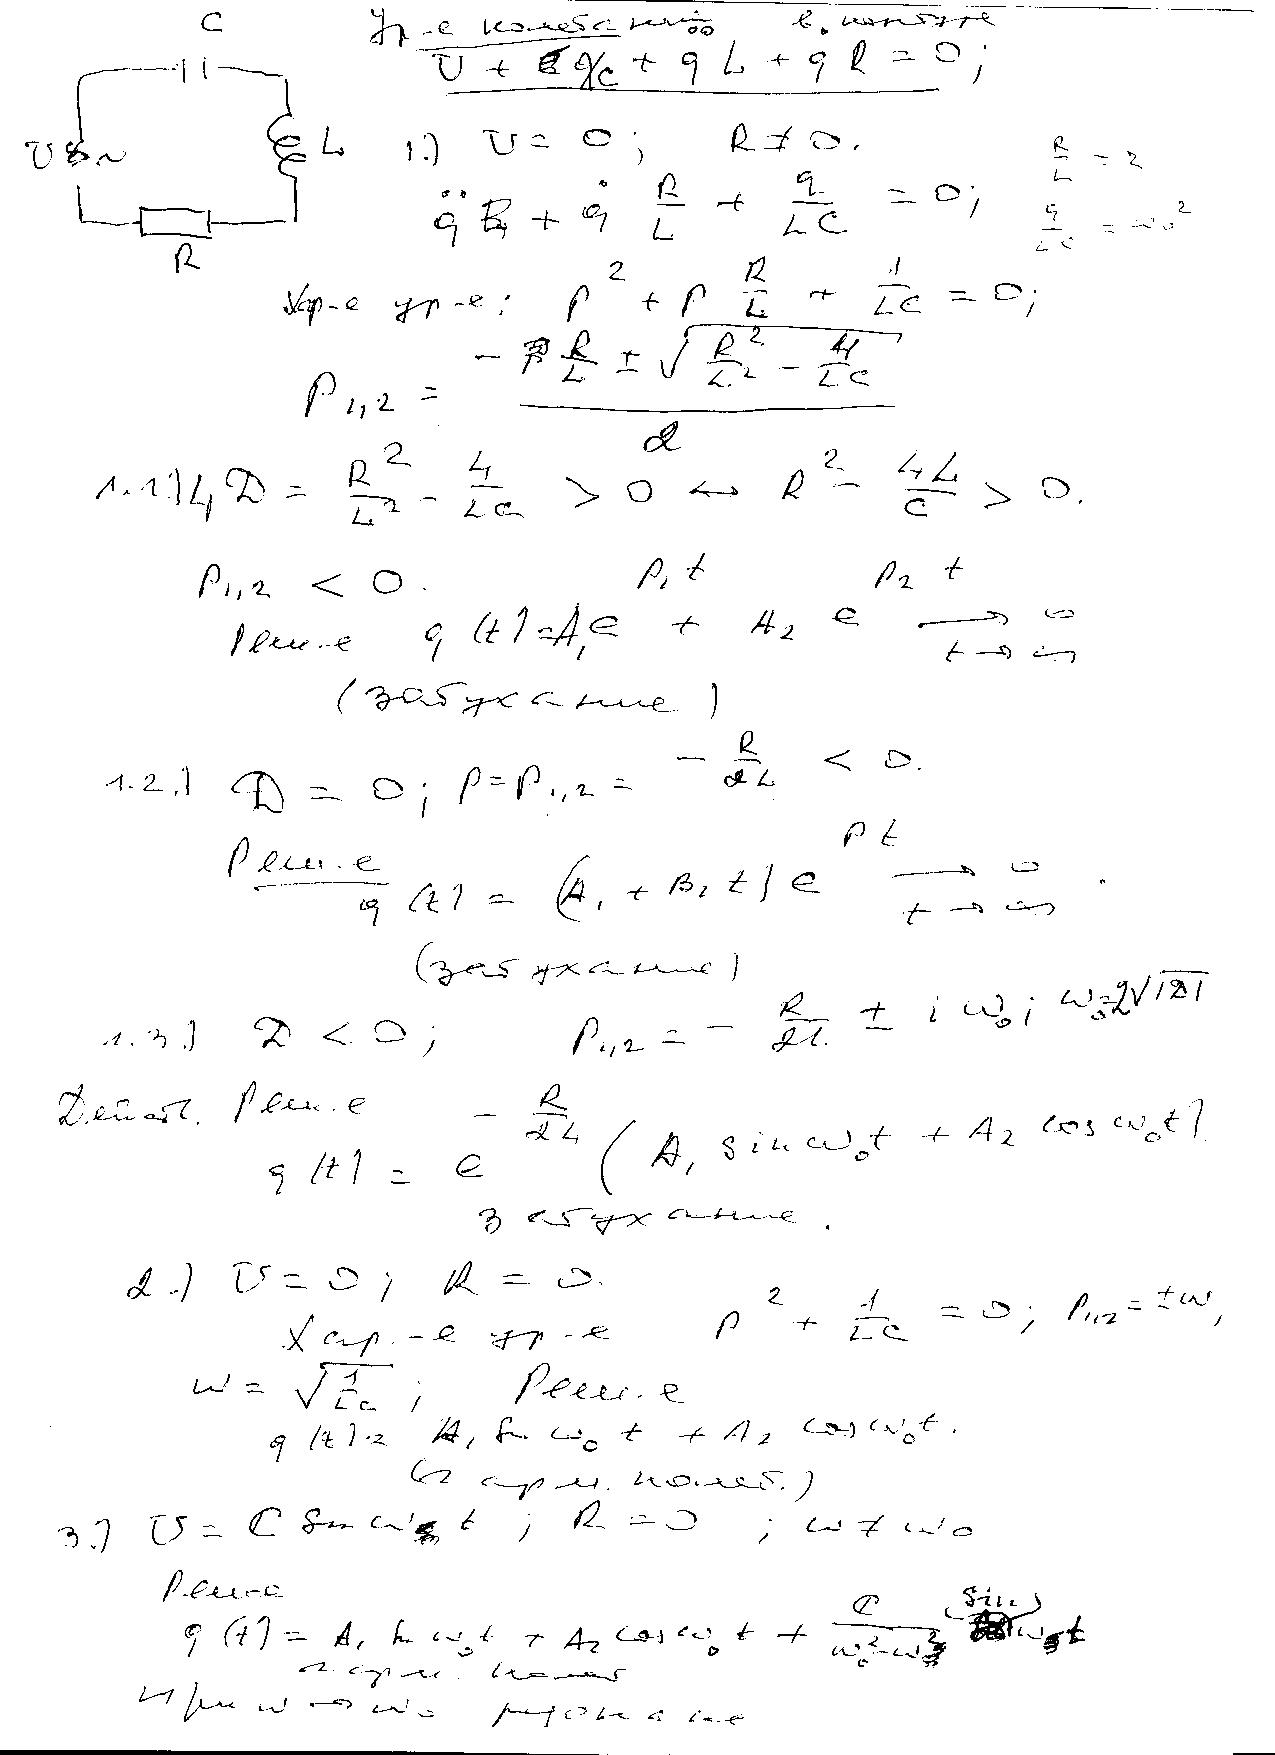 C
Ур-е колебаний в. контуре
U + q/c + qL + qR = 0;
U ~
L
R
1.) U = 0; R ≠ 0.
R/L = 2
q̈ + q̇ R/L + q/LC = 0;
q/LC = ω₀²
Хар-е ур-е: p² + p R/L + 1/LC = 0;
P₁,₂ = (- R/L ± √(R²/L² - 4/LC)) / 2
1.1) 4D = R²/L² - 4/LC > 0 ↔ R² - 4L/C > 0.
P₁,₂ < 0.
Реш-е q(t) = A₁e^(P₁t) + A₂e^(P₂t) → 0 t→∞
(затухание)
1.2.) D = 0; P = P₁,₂ = - R/2L < 0.
Реш.-е
q(t) = (A₁ + B₂t)e^(Pt) → 0 t→∞.
(затухание)
1.3.) D < 0; P₁,₂ = - R/2L ± iω₀; ω₀=2√|D|
Действ. Реш.-е
q(t) = e^(- R/2L) (A₁ sin ω₀t + A₂ cos ω₀t).
затухание.
2.) U = 0; R = 0.
Хар.-е ур-е p² + 1/LC = 0; P₁,₂ = ±ω,
ω = √(1/LC); Реш.-е
q(t) = A₁ sin ω₀t + A₂ cos ω₀t.
(гарм. колеб.)
3.) U = C sin ωt; R = 0; ω ≠ ω₀
Реш-е
q(t) = A₁ sin ω₀t + A₂ cos ω₀t + C/(ω₀² - ω²) sin ωt
гарм. колеб
При ω → ω₀ резонанс